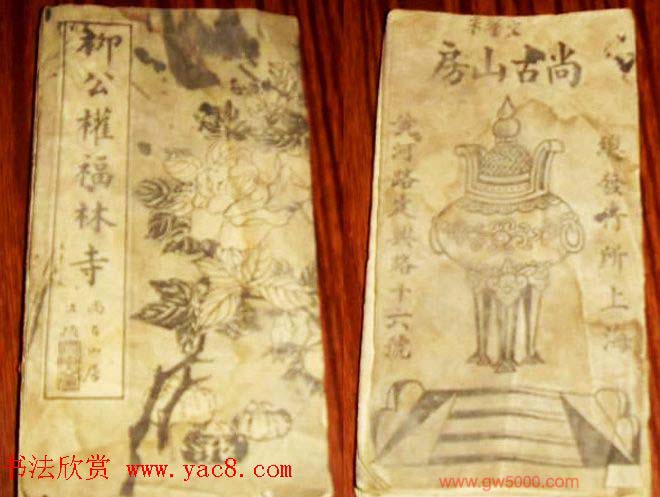 柳公權福林寺
尚古山房
尚古山房
總發行所上海
黃河路定興路十六號
书法欣赏 www.yac8.com
www.gw5000.com